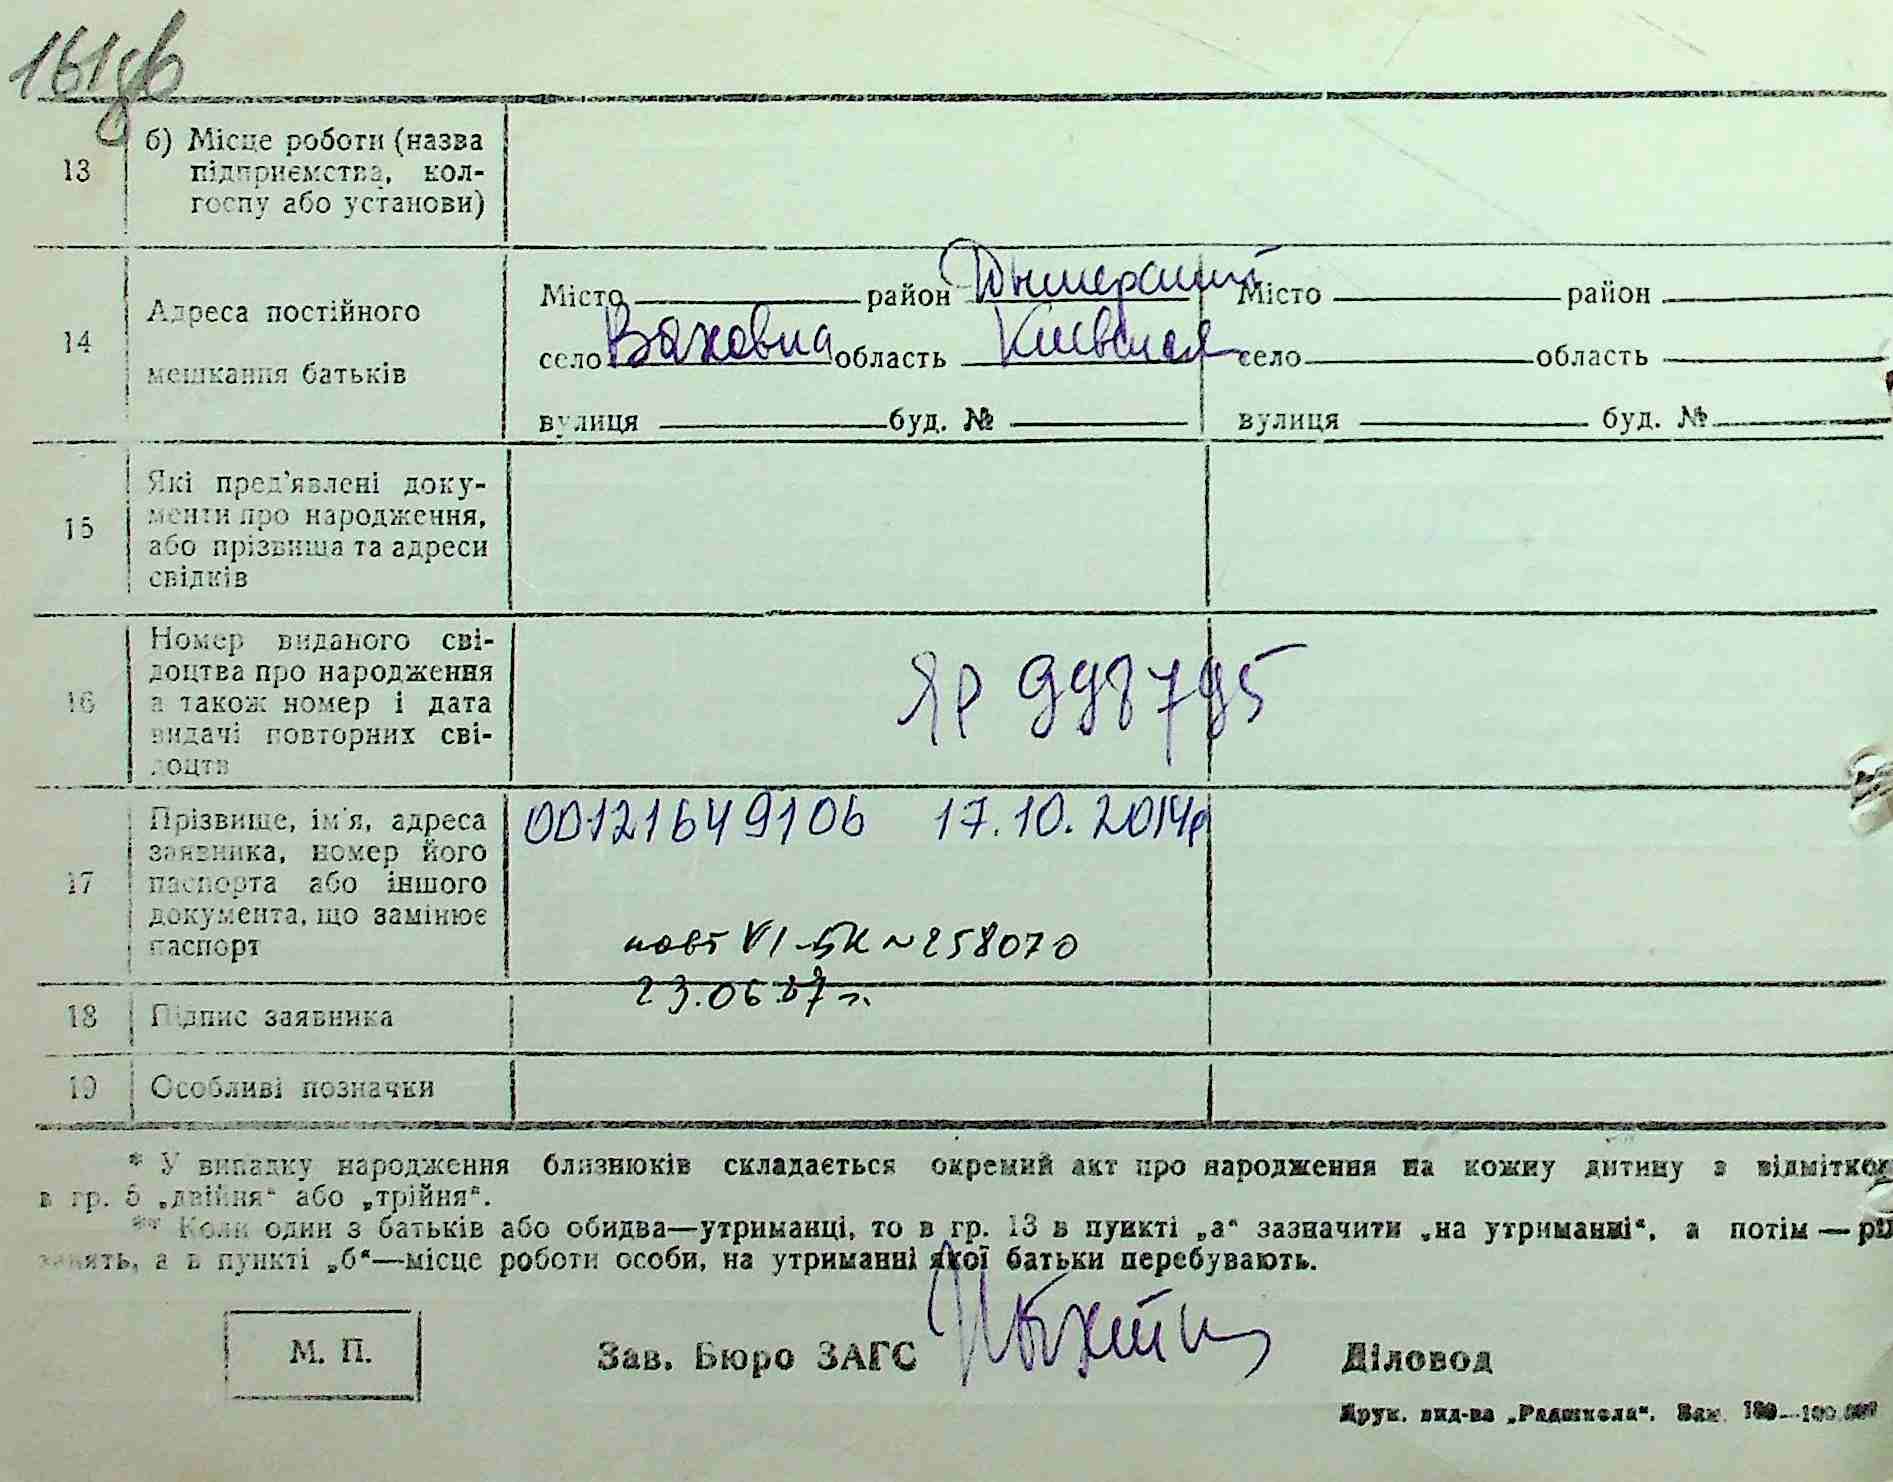 161зв
13
б) Місце роботи (назва
підприємства, кол-
госпу або установи)
14
Адреса постійного
мешкання батьків
Місто район Димерский
село Ваховка область Киевская
вулиця буд. №
Місто район
село область
вулиця буд. №
15
Які пред'явлені доку-
менти про народження,
або прізвища та адреси
свідків
16
Номер виданого сві-
доцтва про народження
а також номер і дата
видачі повторних сві-
доцтв
ЯР 998795
17
Прізвище, ім'я, адреса
заявника, номер його
паспорта або іншого
документа, що замінює
паспорт
00121649106 17.10.2014р
повт VI-БК № 258070
23.06.87 г.
18
Підпис заявника
19
Особливі позначки
* У випадку народження близнюків складається окремий акт про народження на кожну дитину з відміткою
в гр. 5 „двійня“ або „трійня“.
** Коли один з батьків або обидва—утриманці, то в гр. 13 в пункті „а“ зазначити „на утриманні“, а потім — рід
занять, а в пункті „б“—місце роботи особи, на утриманні якої батьки перебувають.
М. П.
Зав. Бюро ЗАГС
Діловод
Друк. вид-ва „Радшкола“. Зам. 180—100.000